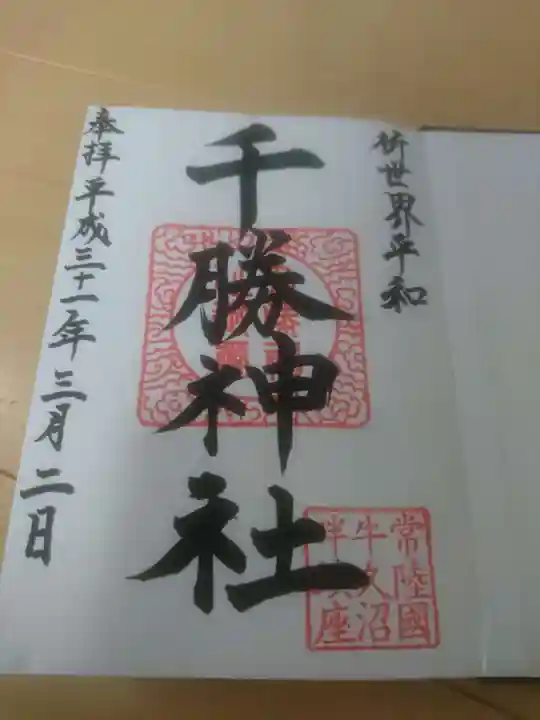 祈世界平和
千勝神社
奉拝平成三十一年三月二日
常陸國
牛久沼
座